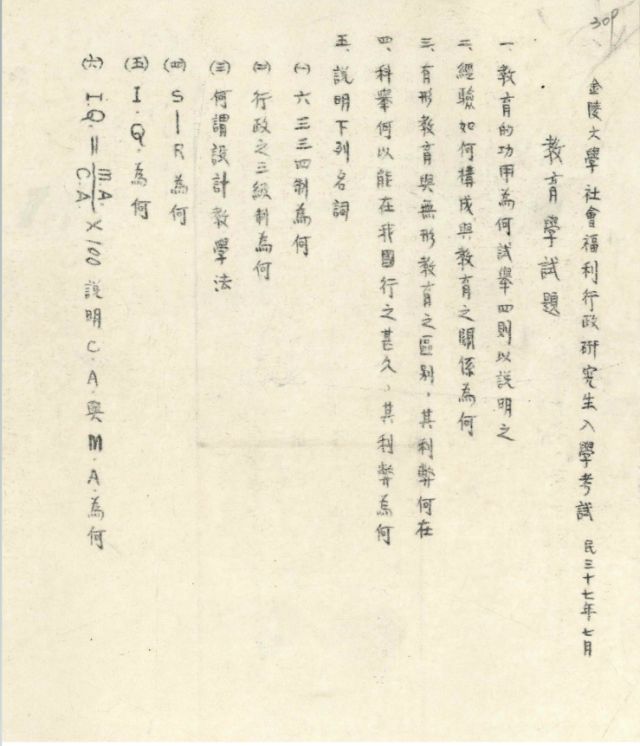 309
金陵大學社會福利行政研究生入學考試 民三十七年七月
教育學試題
一、教育的功用為何試舉四則以說明之
二、經驗如何構成與教育之關係為何
三、有形教育與無形教育之區别，其利弊何在
四、科舉何以能在我國行之甚久，其利弊為何
五、說明下列名詞
(一) 六三三四制為何
(二) 行政之三級制為何
(三) 何謂設計教學法
(四) S—R 為何
(五) I.Q. 為何
(六) I.Q. = M.A./C.A × 100 說明 C.A.與 M.A.為何